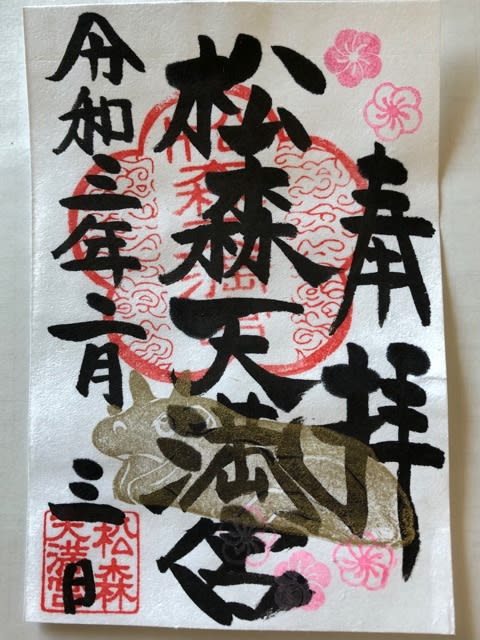 奉拝
松森天満宮
令和三年二月三日
松森
天満宮